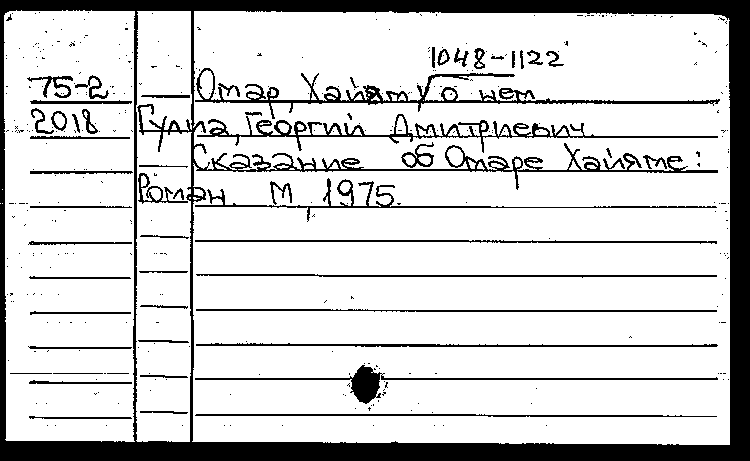 1048-1122
75-2 Омар, Хайям о нем
2018 Гулиа, Георгий Дмитриевич.
Сказание об Омаре Хайяме:
Роман. М, 1975.